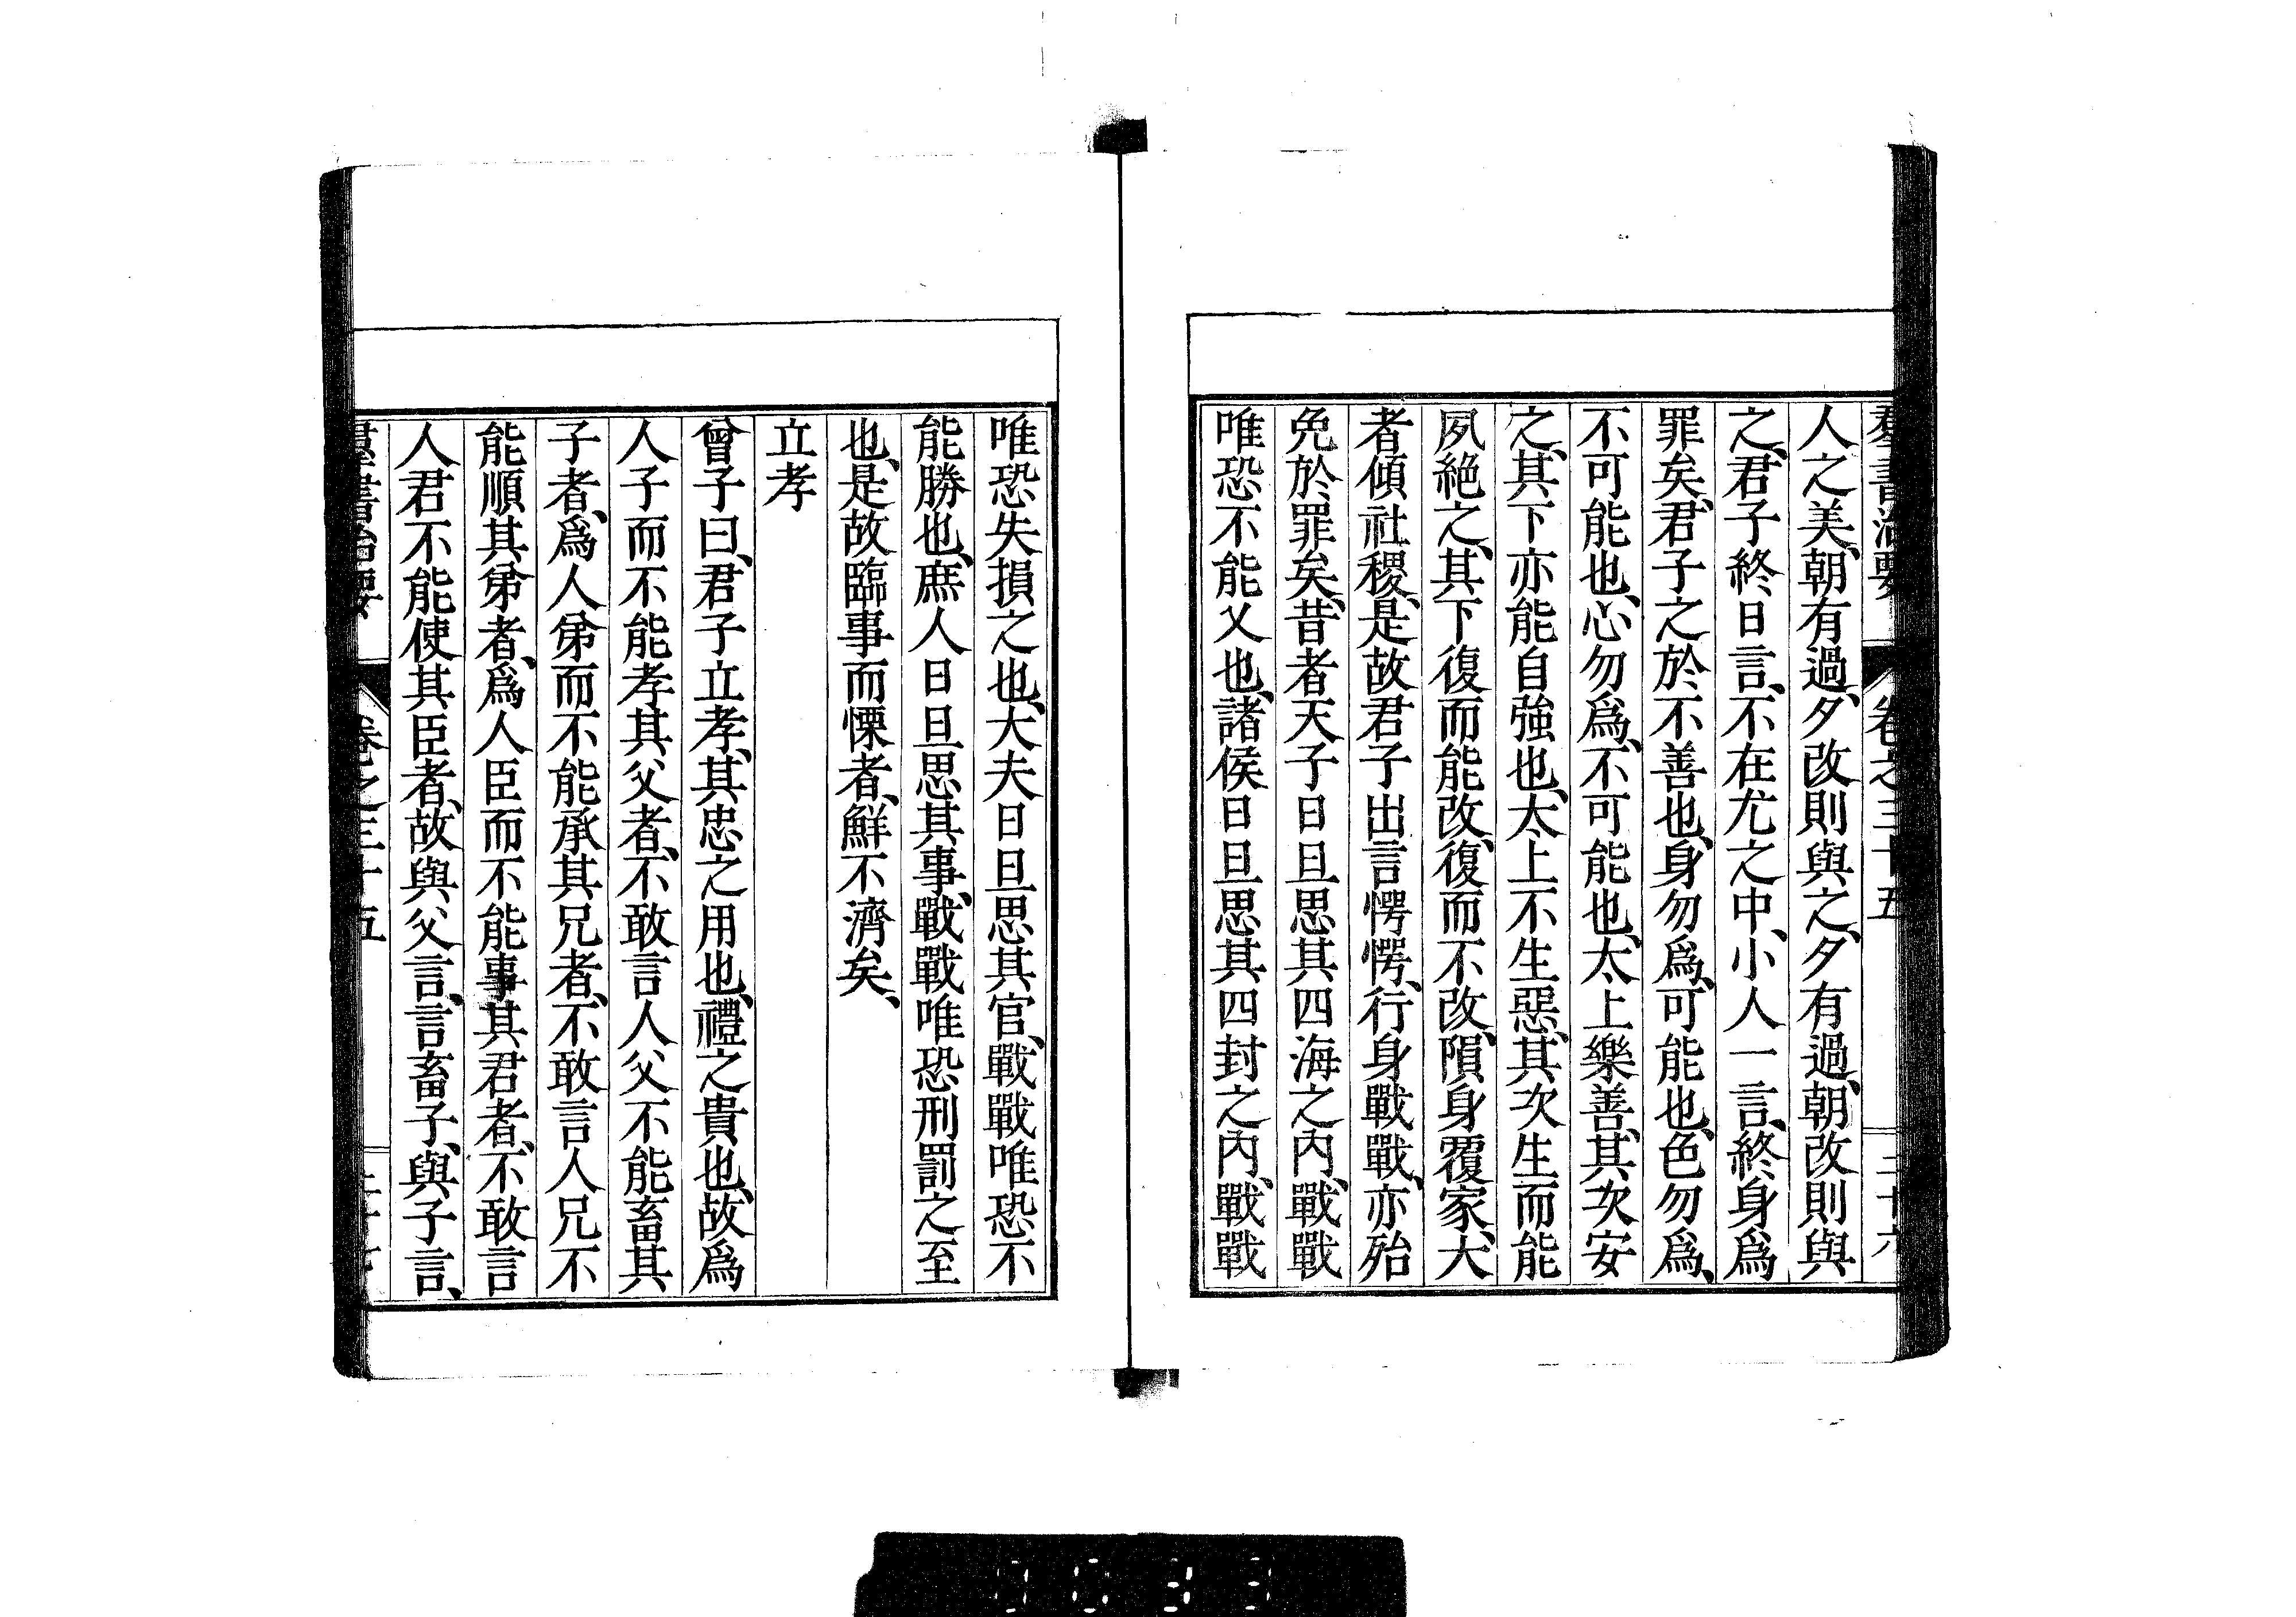 羣書治要 卷之三十五 三十六
人之美、朝有過、夕改則與之、夕有過、朝改則與
之、君子終日言、不在尤之中、小人一言、終身爲
罪矣、君子之於不善也、身勿爲、可能也、色勿爲、
不可能也、心勿爲、不可能也、太上樂善、其次安
之、其下亦能自強也、太上不生惡、其次生而能
夙絕之、其下復而能改、復而不改、隕身覆家、大
者傾社稷、是故君子出言愕愕、行身戰戰、亦殆
免於罪矣、昔者天子日旦思其四海之內、戰戰
唯恐不能乂也、諸侯日旦思其四封之內、戰戰
唯恐失損之也、大夫日旦思其官、戰戰唯恐不
能勝也、庶人日旦思其事、戰戰唯恐刑罰之至
也、是故臨事而慄者、鮮不濟矣、
立孝
曾子曰、君子立孝、其忠之用也、禮之貴也、故爲
人子而不能孝其父者、不敢言人父不能畜其
子者、爲人弟而不能承其兄者、不敢言人兄不
能順其弟者、爲人臣而不能事其君者、不敢言
人君不能使其臣者、故與父言、言畜子、與子言、
羣書治要 卷之三十五